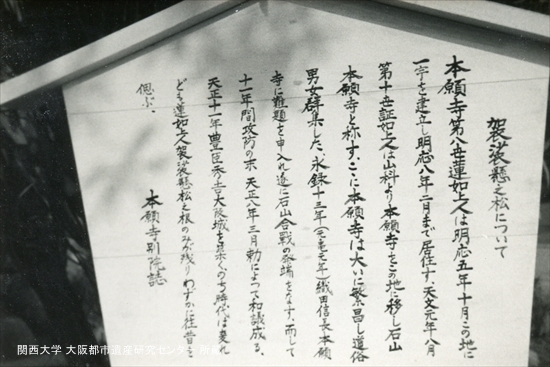 袈裟懸之松について
本願寺第八世蓮如上人は明応五年十月この地に
一宇を建立し明応八年二月まで居住す、天文元年八月
第十世証如上人は山科より本願寺をこの地に移し石山
本願寺と称す、ここに本願寺は大いに繁昌し道俗
男女群集した、永録十三年(元亀元年)織田信長本願
寺に難題を申入れ遂に石山合戦の発端をなす、而して
十一年間攻防の末天正八年三月勅によって和議成る、
天正十一年豊臣秀吉大阪城を築くのち時代は変れ
ども蓮如上人袈裟懸松之根のみ残りわずかに往昔を
偲ぶ、
本願寺別院誌
関西大学 大阪都市遺産研究センター 所蔵